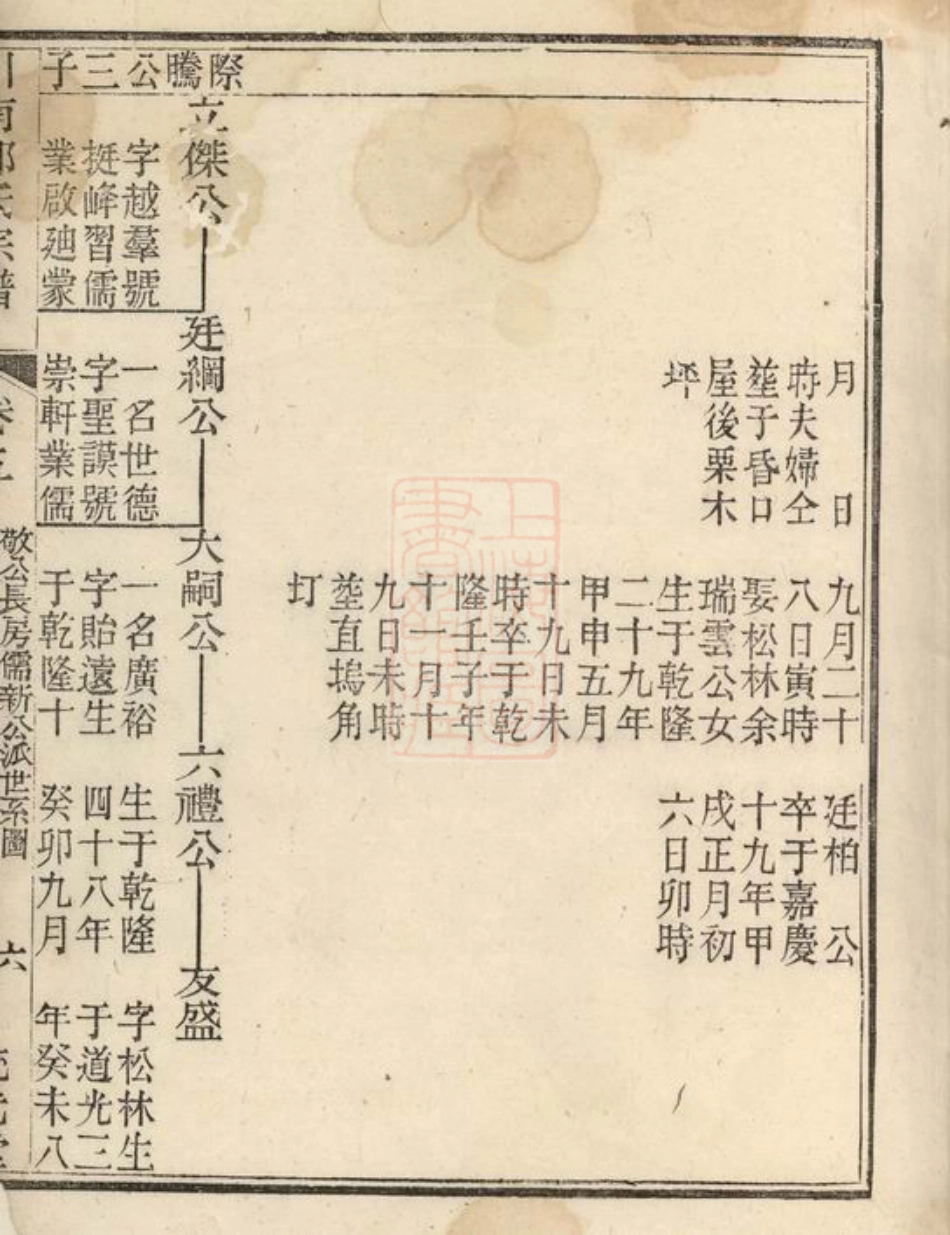 月　日
時夫婦仝
塟于昏口
屋後栗木
坪
九月二十
八日寅時
娶松林余
瑞雲公女
生于乾隆
二十九年
甲申五月
十九日未
時卒于乾
隆壬子年
十一月十
九日未時
塟直塢角
圢
廷柏　公
卒于嘉慶
十九年甲
戌正月初
六日卯時
際騰公三子
立傑公
字越羣號
挺峰習儒
業啟廸蒙
廷綱公
一名世德
字聖謨號
崇軒業儒
大嗣公
一名廣裕
字貽遠生
于乾隆十
六禮公
生于乾隆
四十八年
癸卯九月
友盛
字松林生
于道光三
年癸未八
氏宗譜
敬公長房儒新公派世系圖
六